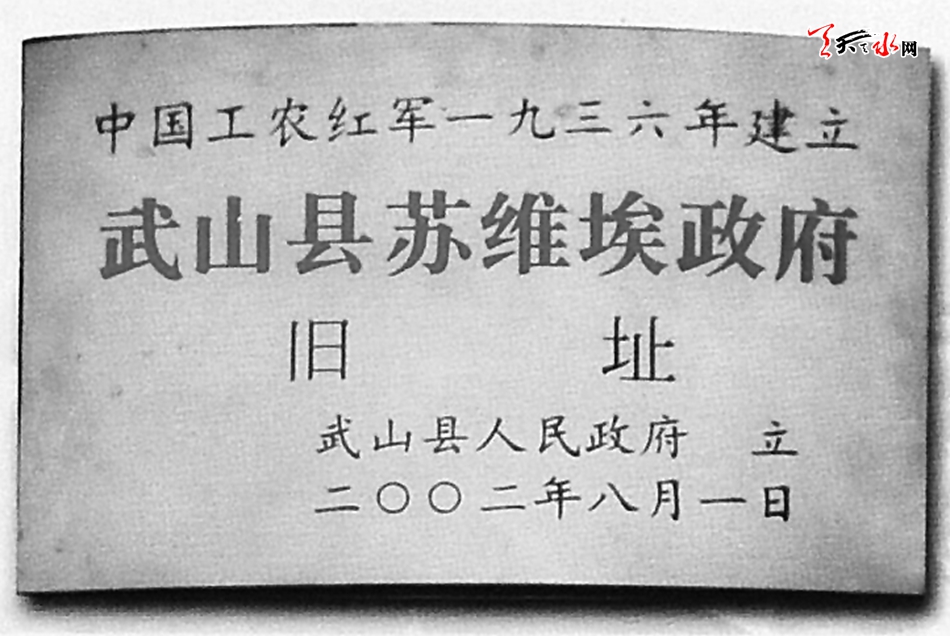 天天水网
中国工农红军一九三六年建立
武山县苏维埃政府
旧 址
武山县人民政府 立
二〇〇二年八月一日